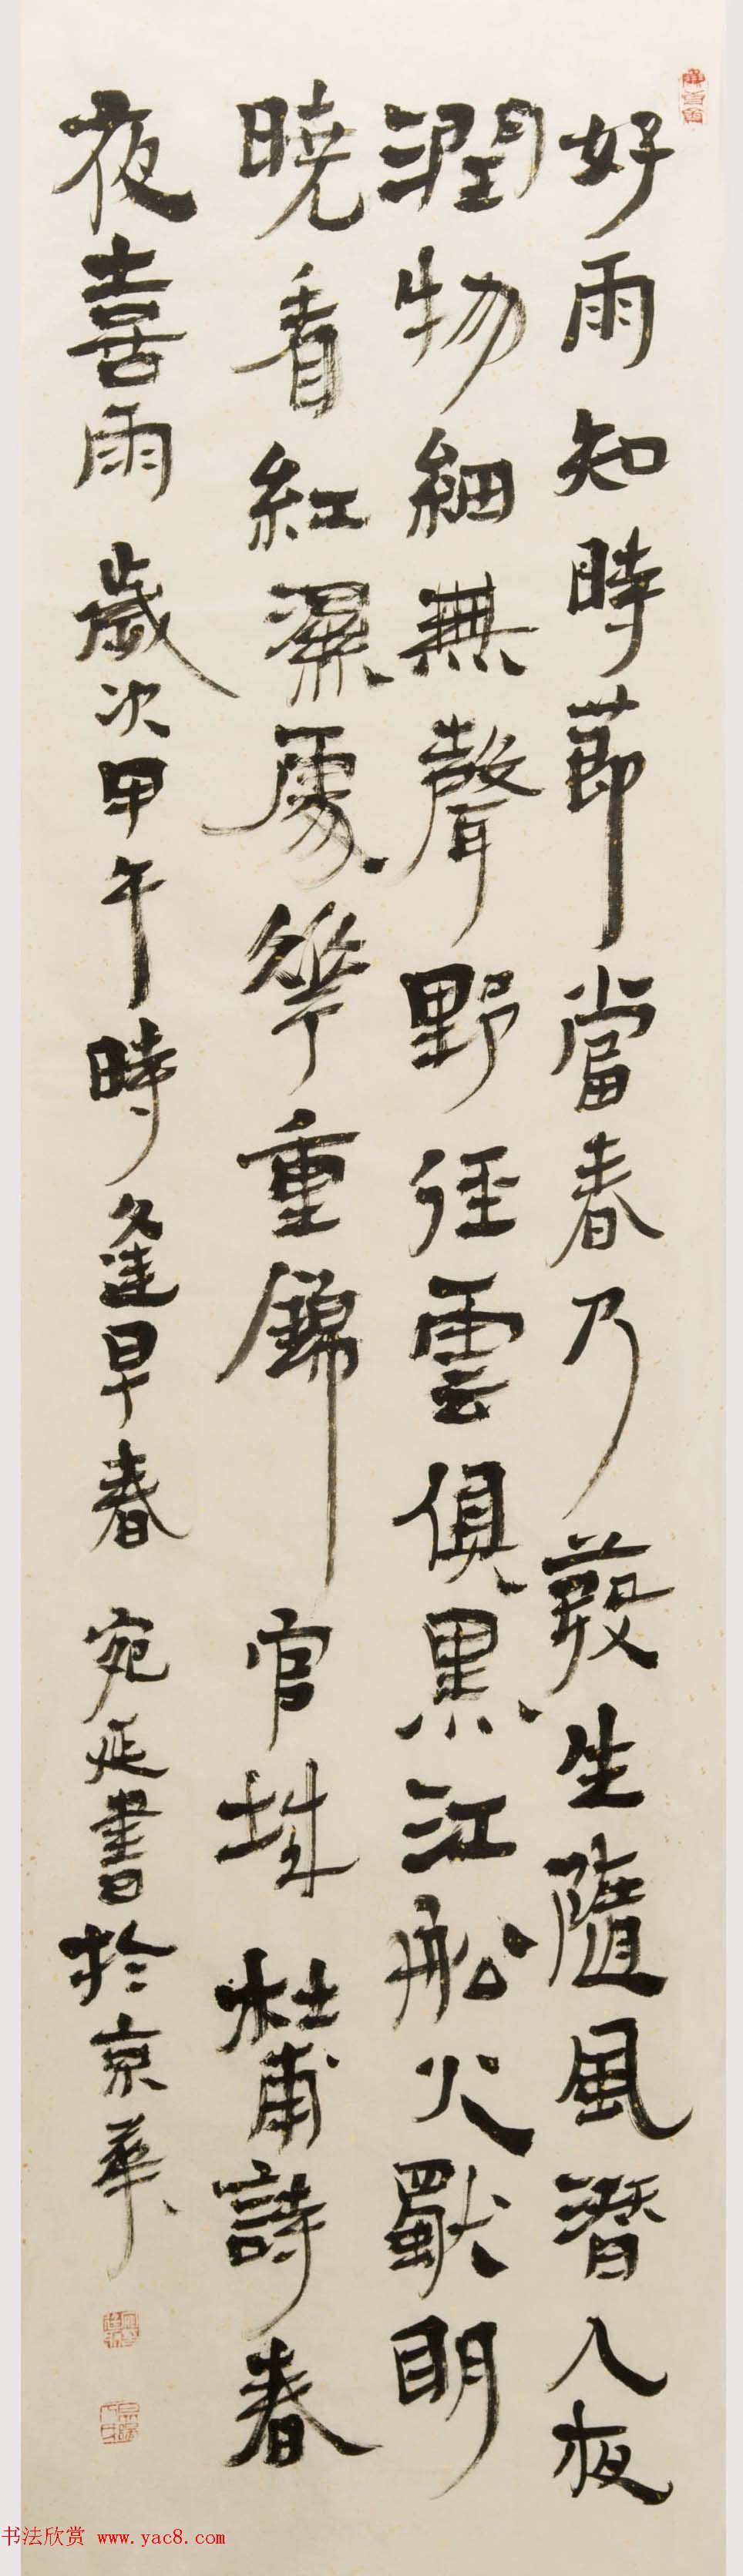 好雨知時節當春乃發生隨風潛入夜
潤物細無聲野徑雲俱黑江船火獨明
曉看紅濕處花重錦官城杜甫詩春
夜喜雨歲次甲午時逢早春宛延書於京華
书法欣赏 www.yac8.com